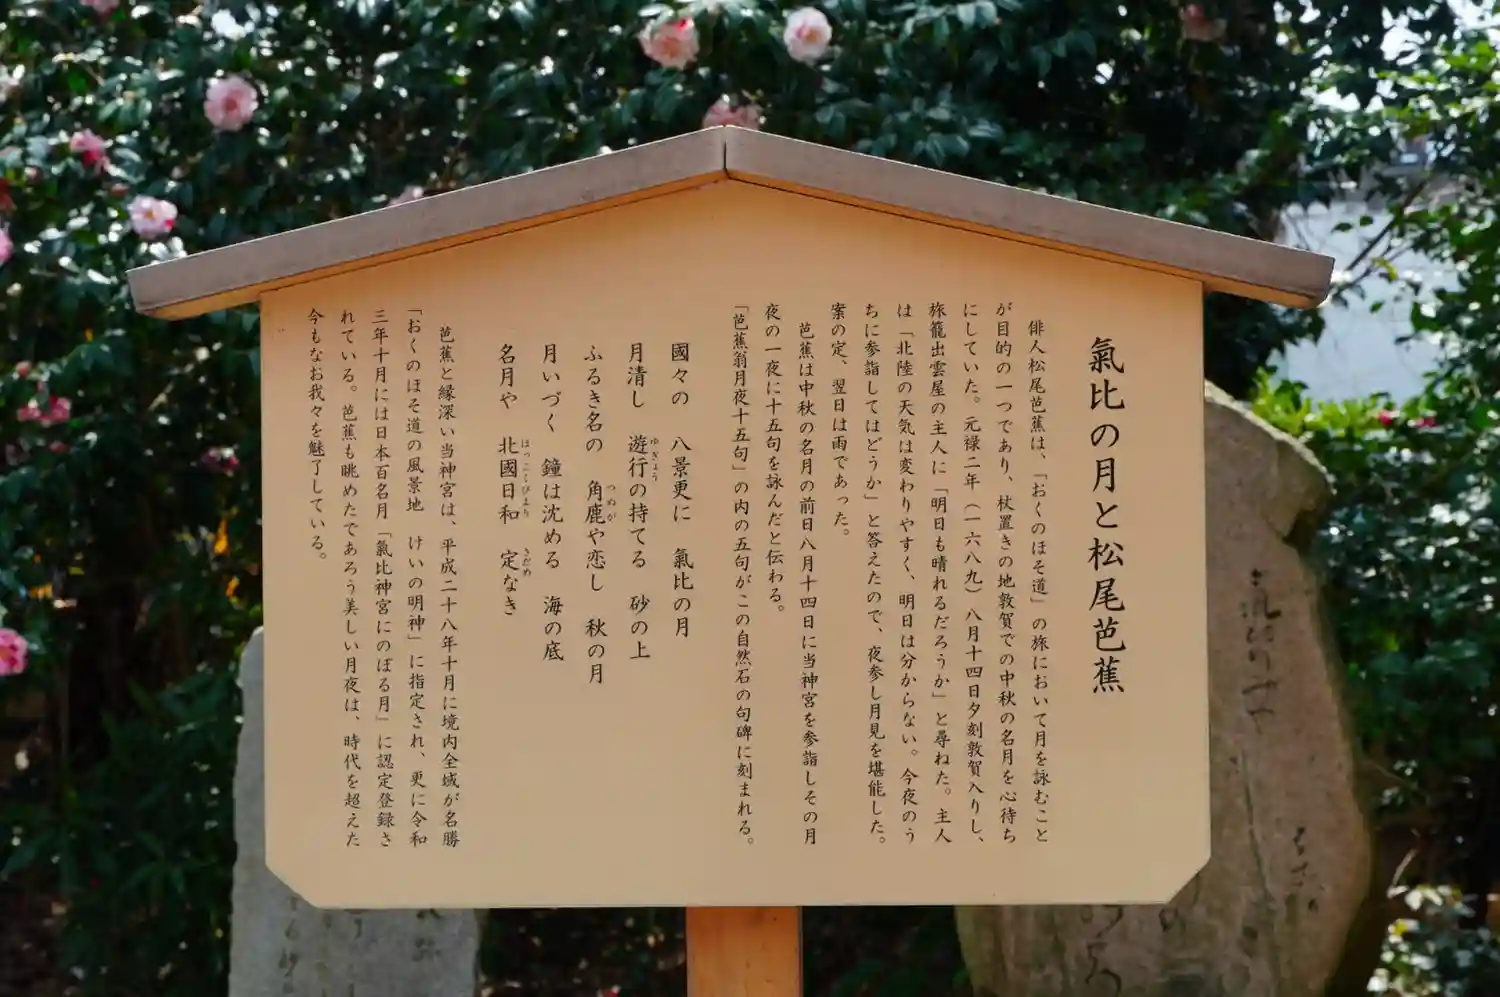 氣比の月と松尾芭蕉
俳人松尾芭蕉は、「おくのほそ道」の旅において月を詠むこと
が目的の一つであり、杖置きの地敦賀での中秋の名月を心待ち
にしていた。元禄二年（一六八九）八月十四日夕刻敦賀入りし、
旅籠出雲屋の主人に「明日も晴れるだろうか」と尋ねた。主人
は「北陸の天気は変わりやすく、明日は分からない。今夜のう
ちに参詣してはどうか」と答えたので、夜参し月見を堪能した。
案の定、翌日は雨であった。
芭蕉は中秋の名月の前日八月十四日に当神宮を参詣しその月
夜の一夜に十五句を詠んだと伝わる。
「芭蕉翁月夜十五句」の内の五句がこの自然石の句碑に刻まれる。
國々の　八景更に　氣比の月
月清し　遊行の持てる　砂の上
ゆぎょう
ふるき名の　角鹿や恋し　秋の月
つぬが
月いづく　鐘は沈める　海の底
名月や　北國日和　定なき
ほっこくびより　さだめ
芭蕉と縁深い当神宮は、平成二十八年十月に境内全域が名勝
「おくのほそ道の風景地　けいの明神」に指定され、更に令和
三年十月には日本百名月「氣比神宮にのぼる月」に認定登録さ
れている。芭蕉も眺めたであろう美しい月夜は、時代を超えた
今もなお我々を魅了している。